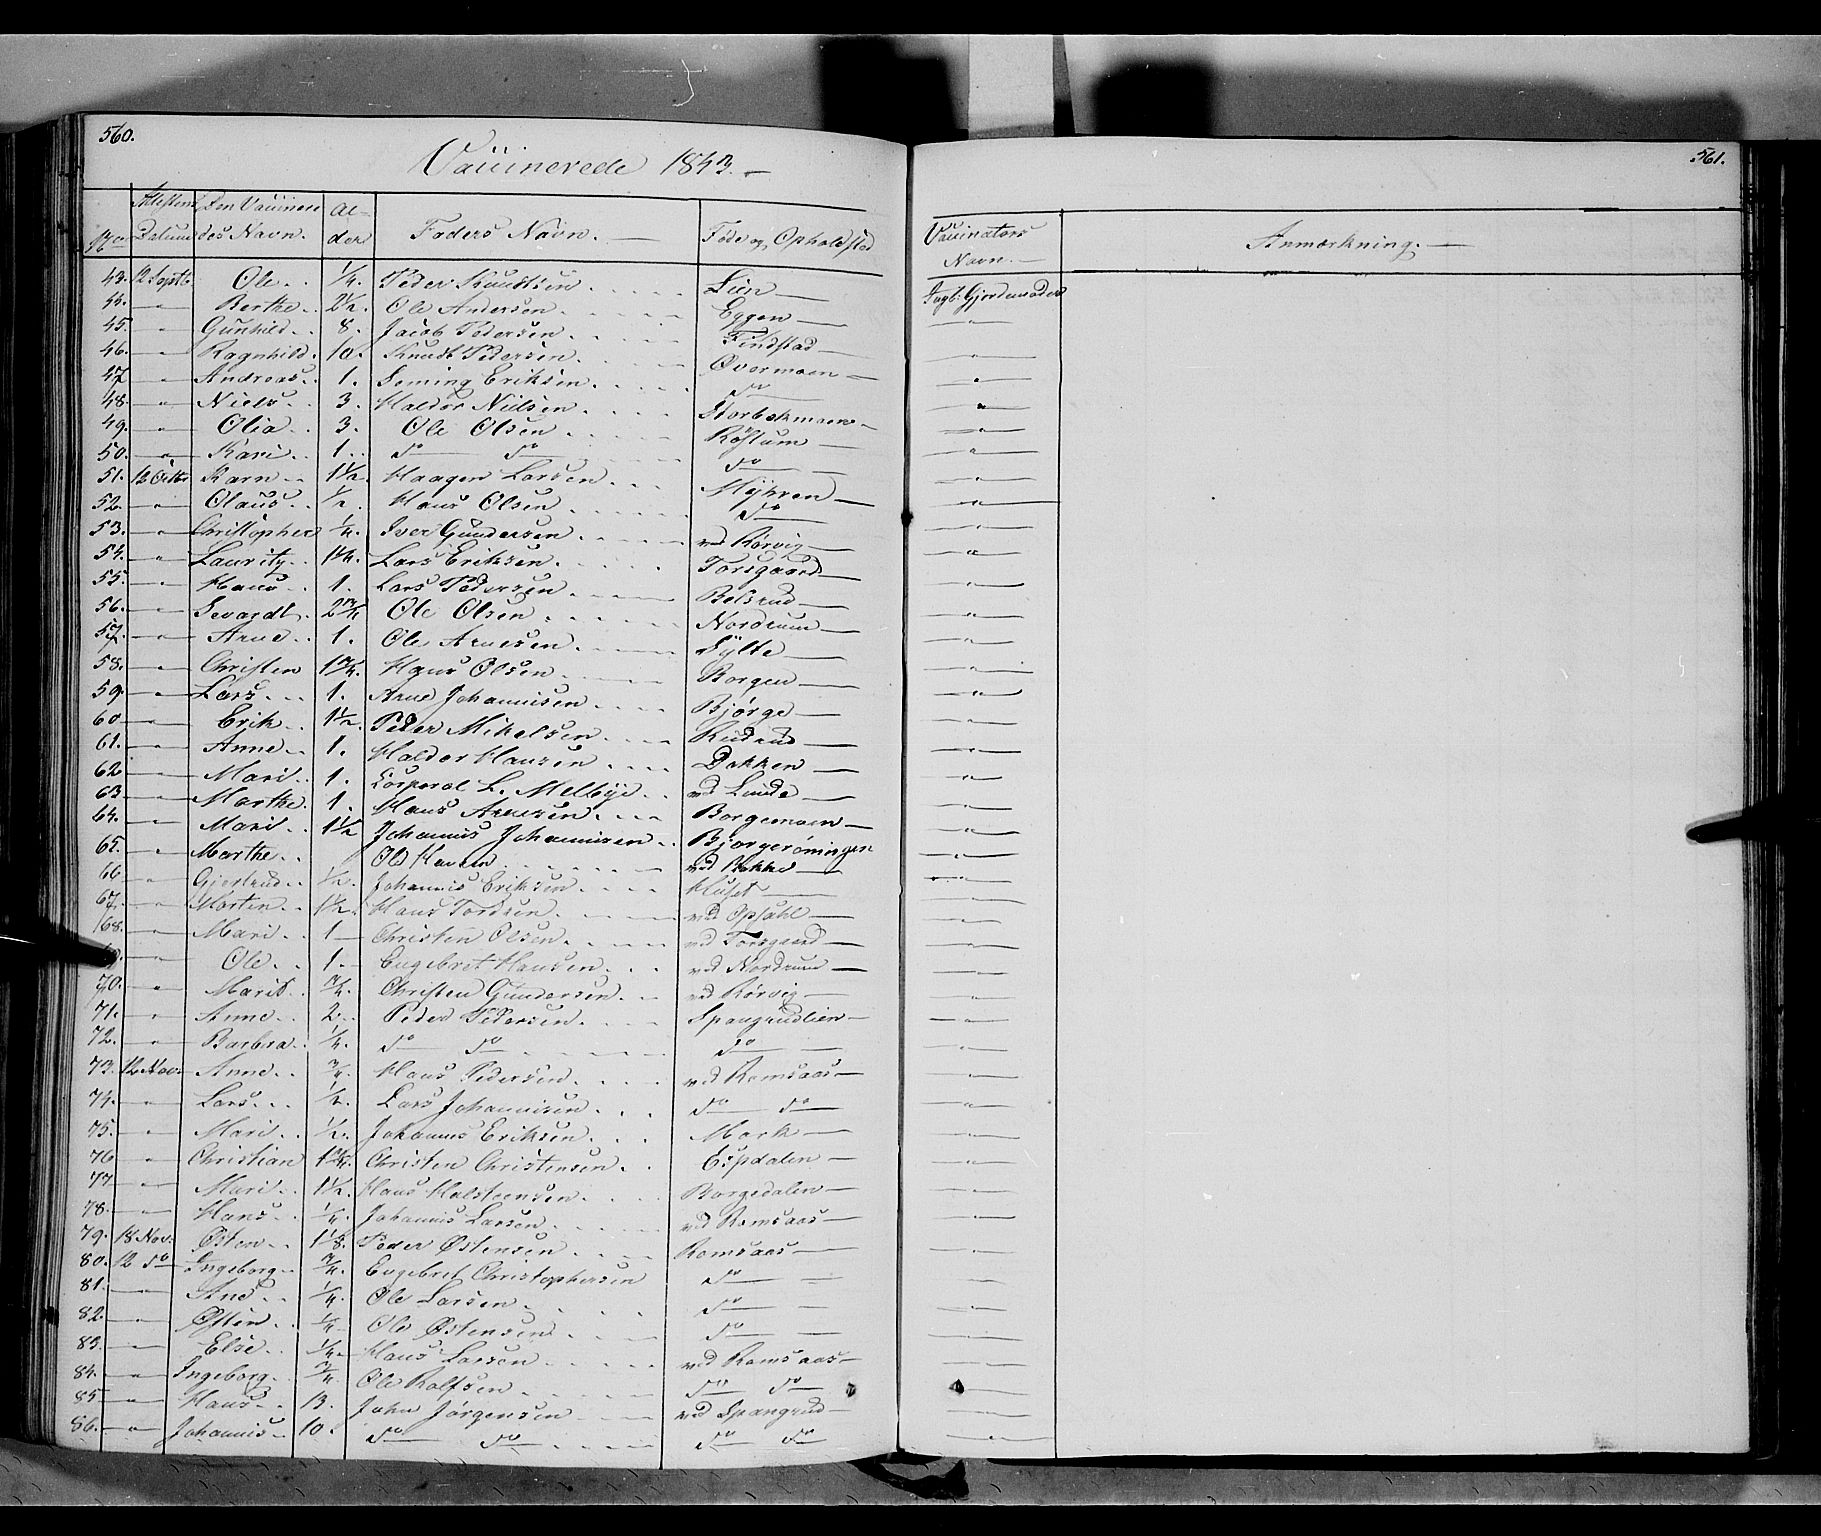 560.
Vaccinerede 1843.
No | Attestens Datum | Den Vaccineredes Navn. | Alder | Faders Navn. | Føde og Opholdsted
43. 12 Septb. Ole 1/4. Peder Knudsen Lien
44. " Berthe 2 1/2. Ole Andersen Eggen
45. " Gunhild 8. Jacob Pedersen Findstad
46. " Ragnhild 10. Knudt Pedersen Øvermoen
47 " Andreas 1. Seming Eriksen do
48. " Niels 3. Haldor Nielsen Storbekmoen
49. " Olia 3. Ole Olsen Røstum
50. " Kari 1. do do do
51. 12 Octbr Karn 1 1/2. Haagen Larsen Myhren
52. " Olaus 1/2. Hans Olsen do
53. " Christopher 1/4. Iver Gundersen ved Rørvig
54. " Lauritz 1 1/4. Lars Eriksen Torsgaard
55. " Hans 1. Lars Pedersen Belsrud
56. " Sevardt 2 3/4 Ole Olsen Nordrum
57. " Arne 1. Ole Arnesen Sylte
58. " Christen 1 3/4. Hans Olsen Borgen
59. " Lars 1. Arne Johannisen Bjørge
60 " Erik 1 1/2. Peder Mikelsen Rudrud
61. " Anne 1. Haldor Hansen Dokken
62 " Mari 1. Corporal L. Melbye ved Lunde
63. " Marthe 1. Hans Arnesen Borgemoen
64. " Marit 1 1/2 Johannis Johannisen Bjørgerøningen
65. " Marthe Ole Hansen ved Bakke
66 " Gjertrud 1/2. Johannis Eriksen Huset
67. " Morten 1 1/2. Hans Tordsen ved Opsahl
68. " Mari 1 Christen Olsen ved Torsgaard
" Ole 1. Engebret Hansen ved Nordrum
70. " Marit 3/4. Christen Gundersen ved Rørvig
71. " Anne 2. Peder Pedersen Spangrudlien
72. " Barbra 1/4. do do do
73. 12 Nov. Anne 3/4. Hans Pedersen ved Romsaas
74. " Lars 1/2. Lars Johannisen do do
75. " Marit 1/2. Johannis Eriksen Mork
76 " Christian 1 3/4. Christen Christensen Espdalen
77 " Mari 1 1/2. Hans Halsteensen Borgedalen
78. " Hans 1/4. Johannis Larsen ved Romsaas
79. 18 Nov. Østen 1 1/8. Peder Østensen Romsaas
80. 12 do Ingeborg 3/4. Engebret Christophersen do
81. " Ane 1/4. Ole Larsen do
82. " Østen 1/4. Ole Østensen do
83. " Else 1/4. Hans Larsen ved Romsaas
84. " Ingeborg 3/4. Ole Rolfsen do do
85 " Hans 13. John Jørgensen ved Spangrud
86. " Johannis 10. do do do do
561.
Vaccinators Navn. | Anmærkning.
Ingb: Gjordemoder